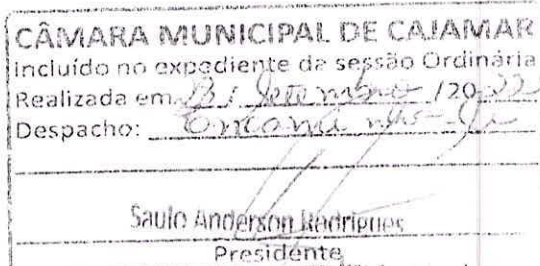 CÂMARA MUNICIPAL DE CAJAMAR
Incluído no expediente da sessão Ordinária
Realizada em 13 / Setembro /2022
Despacho: Encaminhe-se
Saulo Anderson Rodrigues
Presidente